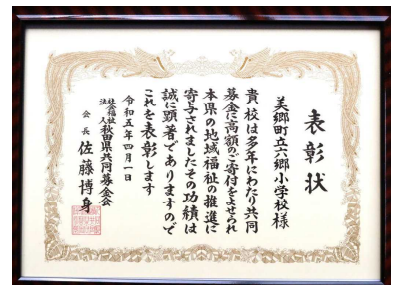 表彰状
美郷町立六郷小学校様
貴校は多年にわたり共同
募金に高額のご寄付をよせられ
本県の地域福祉の推進に
寄与されましたその功績は
誠に顕著でありますので
これを表彰します
令和五年四月一日
社会福祉法人秋田県共同募金会
会長佐藤博身